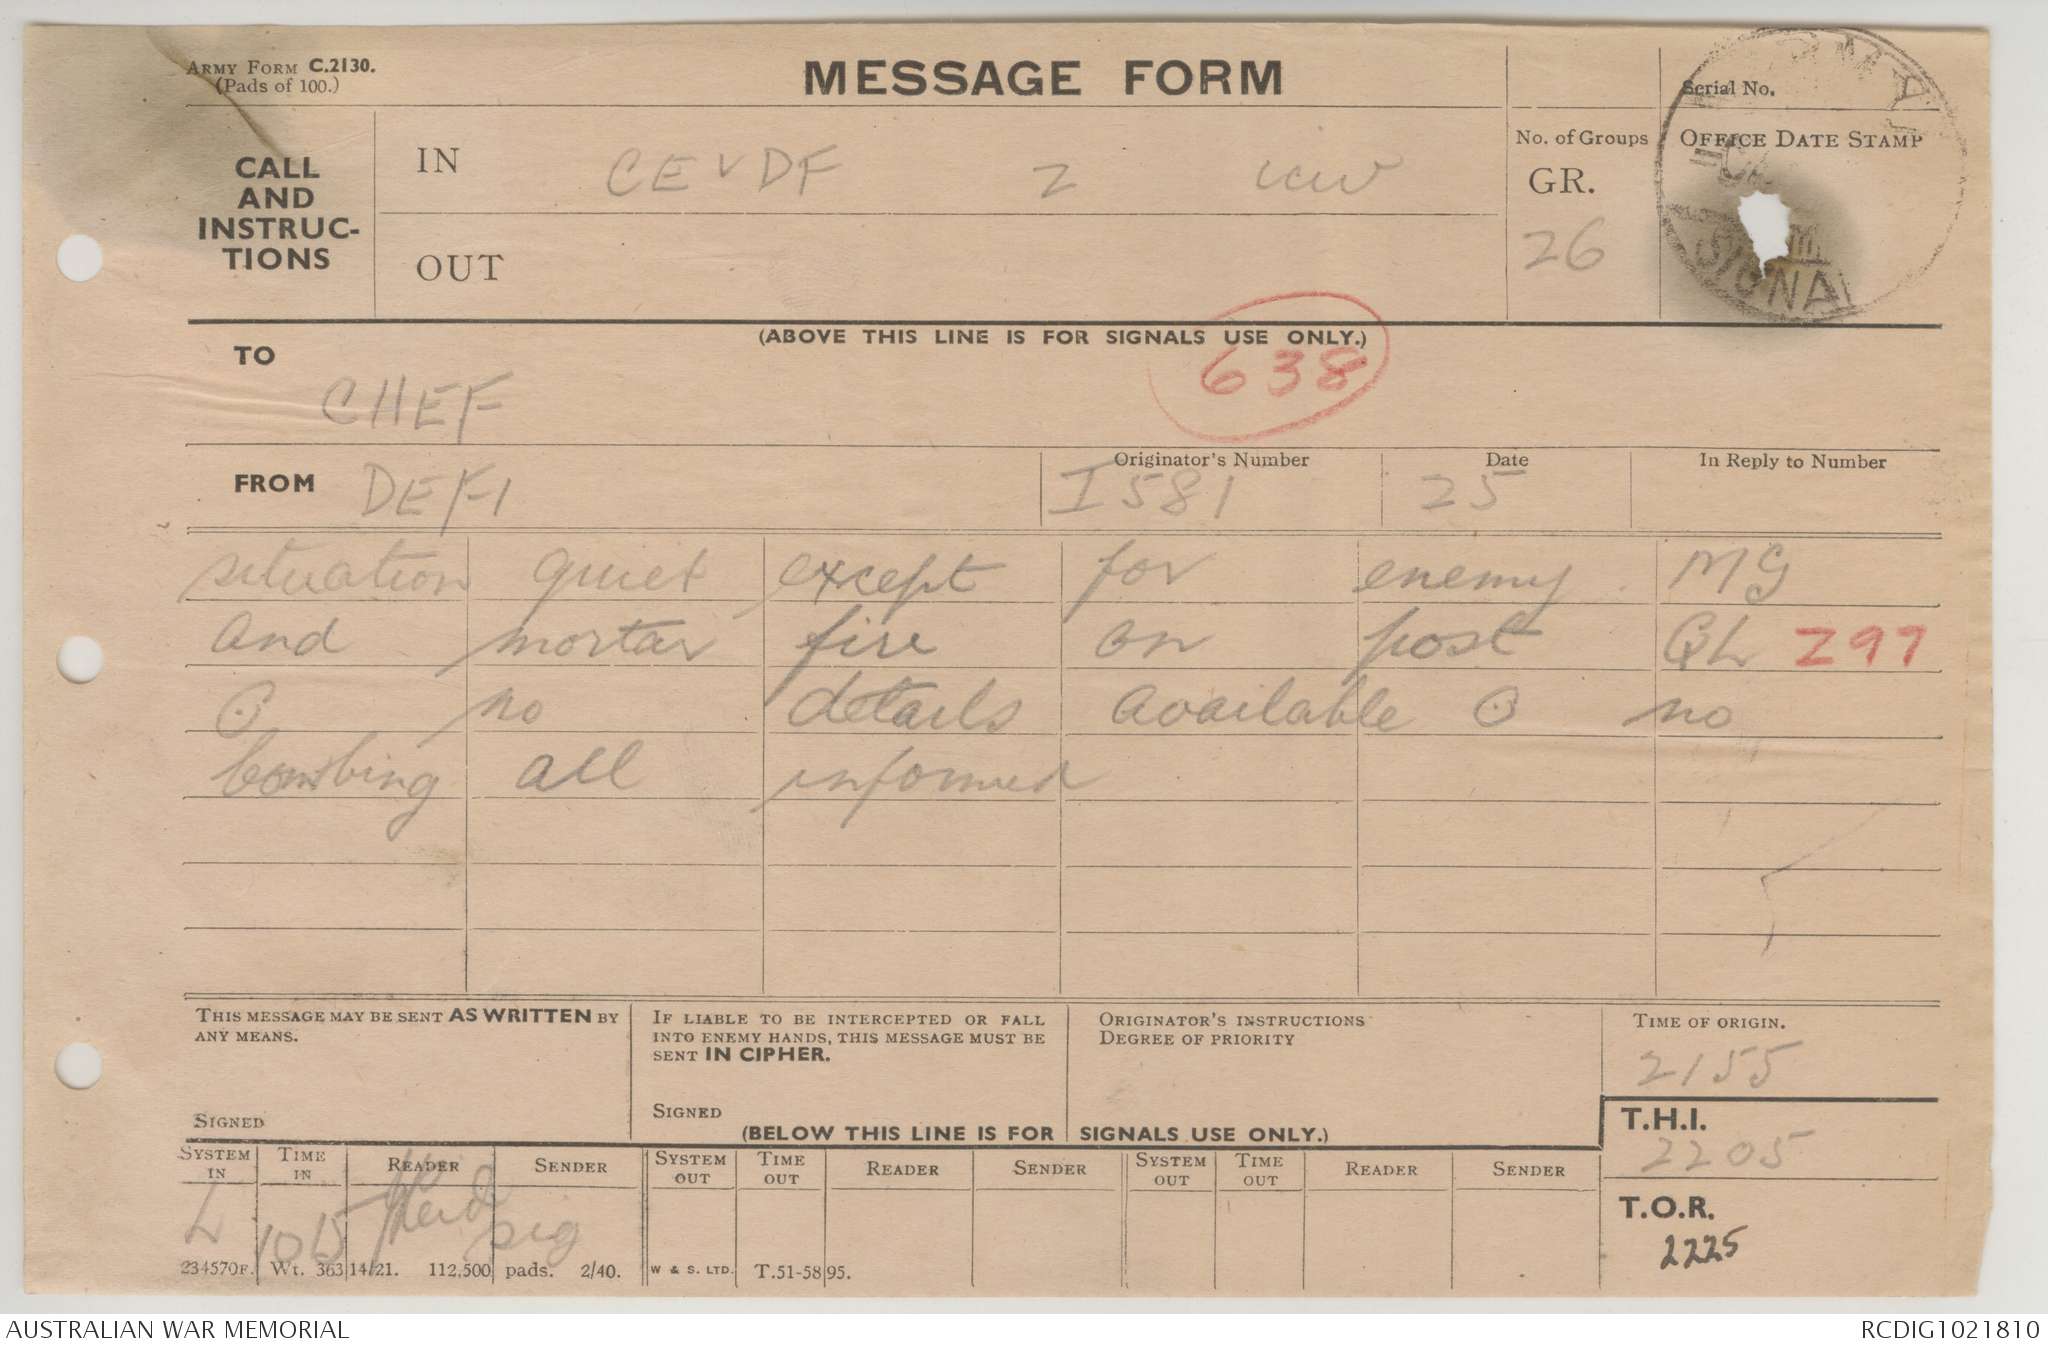 ARMY FORM C.2130.
(Pads of 100.)
MESSAGE FORM
Serial No.
CALL AND INSTRUC-TIONS
IN CE V DF Z
OUT
No. of Groups
GR.
26
OFFICE DATE STAMP
SIGNA
(ABOVE THIS LINE IS FOR SIGNALS USE ONLY.)
638
TO
CHEF
FROM DEFI
Originator's Number
I581
Date
25
In Reply to Number
situation quiet except for enemy MG
and mortar fire on post QL Z97
⊙ no details available ⊙ no
bombing all informed
THIS MESSAGE MAY BE SENT AS WRITTEN BY
ANY MEANS.
SIGNED
IF LIABLE TO BE INTERCEPTED OR FALL
INTO ENEMY HANDS, THIS MESSAGE MUST BE
SENT IN CIPHER.
SIGNED
ORIGINATOR'S INSTRUCTIONS
DEGREE OF PRIORITY
TIME OF ORIGIN.
2155
T.H.I.
2205
T.O.R.
2225
(BELOW THIS LINE IS FOR SIGNALS USE ONLY.)
SYSTEM IN TIME IN READER SENDER SYSTEM OUT TIME OUT READER SENDER SYSTEM OUT TIME OUT READER SENDER
L sig
234570F. Wt. 36314/21. 112,500 pads. 2/40. W & S. LTD. T.51-5895.
AUSTRALIAN WAR MEMORIAL
RCDIG1021810